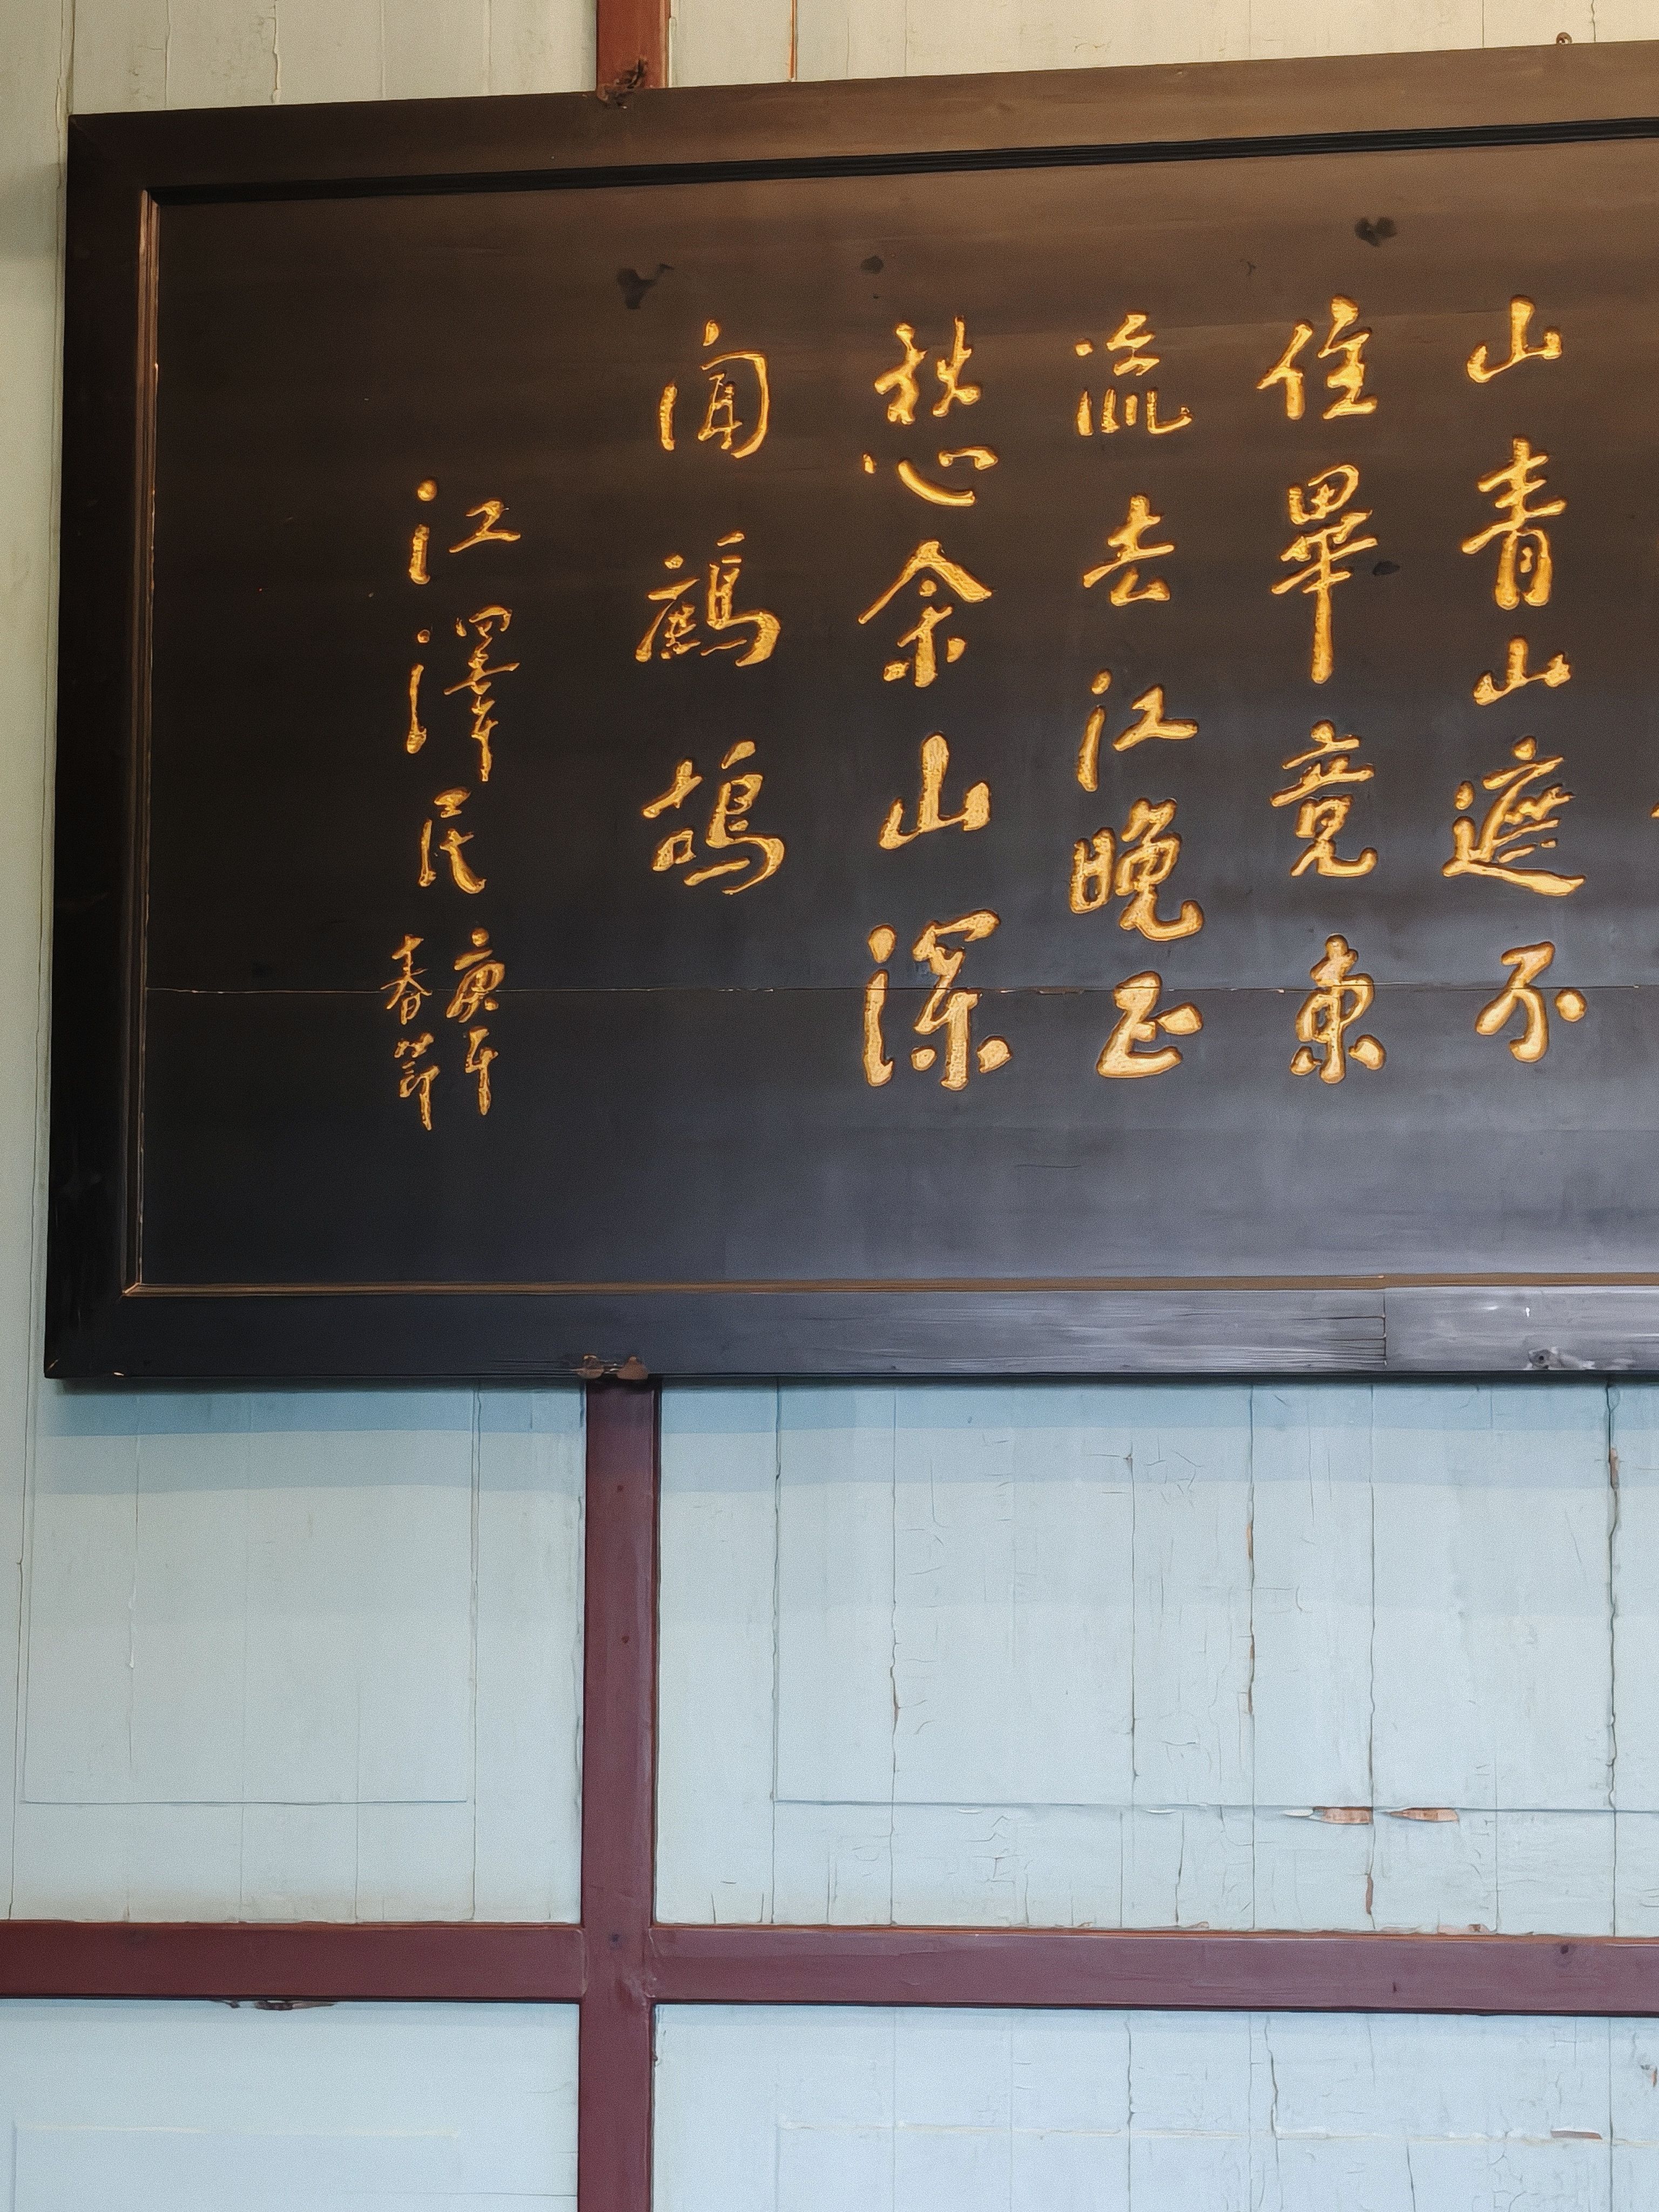 山青山遮不
住畢竟東
流去江晚正
愁余山深
聞鷓鴣
江澤民
庚午
春節